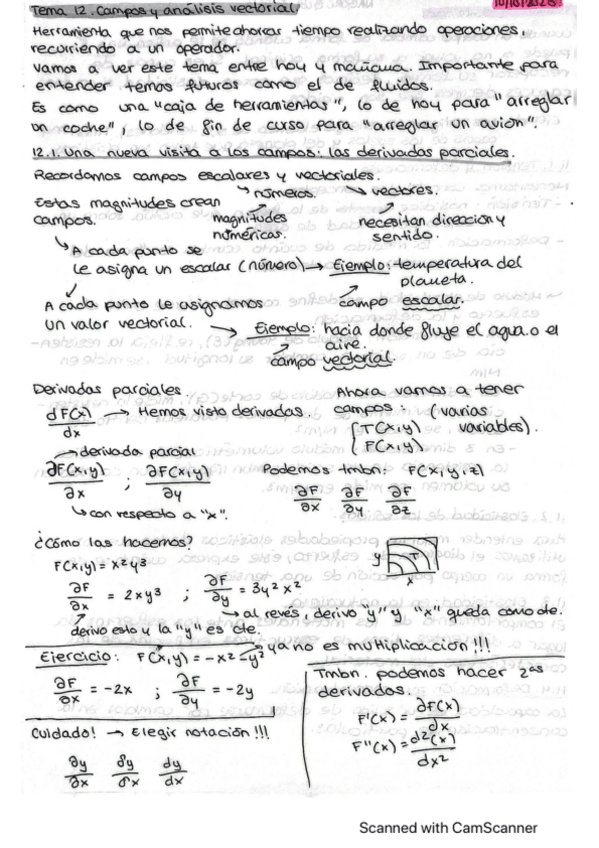 Tema 12. Campos y análisis vectorial
10/10/2025
Herramienta que nos permite ahorrar tiempo realizando operaciones,
recurriendo a un operador.
Vamos a ver este tema entre hoy y mañana. Importante para
entender temas futuros como el de fluidos.
Es como una "caja de herramientas", lo de hoy para "arreglar
un coche", lo de fin de curso para "arreglar un avión".
12.1. Una nueva visita a los campos: las derivadas parciales.
Recordamos campos escalares y vectoriales.
números. vectores.
Estas magnitudes crean
campos.
magnitudes
numéricas.
necesitan direccion y
sentido.
A cada punto se
le asigna un escalar (número) → Ejemplo: temperatura del
planeta.
campo escalar.
A cada punto le asignamos
un valor vectorial. → Ejemplo: hacia donde fluye el agua o el
aire.
campo vectorial.
Derivadas parciales
dF(x)/dx → Hemos visto derivadas.
Ahora vamos a tener
campos: (varias
variables).
{T(x,y)
F(x,y)
derivada parcial
∂F(x,y)/∂x ; ∂F(x,y)/∂y
con respecto a "x".
Podemos tmbn: F(x,y,z)
∂F/∂x ∂F/∂y ∂F/∂z
¿Cómo las hacemos?
F(x,y) = x²y³
y T x
∂F/∂x = 2xy³ ; ∂F/∂y = 3y²x²
al revés, derivo "y" y "x" queda como cte.
derivo esto y la "y" es cte.
Ejercicio: F(x,y) = -x² - y² ya no es multiplicación !!!
∂F/∂x = -2x ; ∂F/∂y = -2y
Cuidado! → Elegir notación !!!
∂y/∂x δy/δx dy/dx
Tmbn. podemos hacer 2as
derivadas.
F'(x) = ∂F(x)/dx
F''(x) = d²(x)/dx²
Scanned with CamScanner